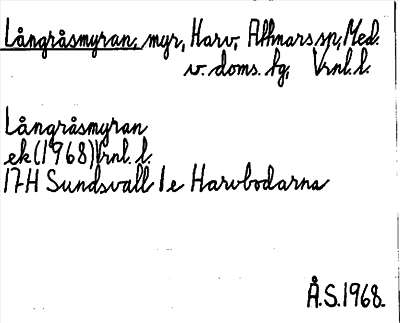 Långråsmyran, myr, Harv, Attmars sn, Med.
v. doms. hg, Vrnl. l.
Långråsmyran
ek (1968) Vrnl. l.
17H Sundsvall 1e Harvbodarna
Å.S. 1968.